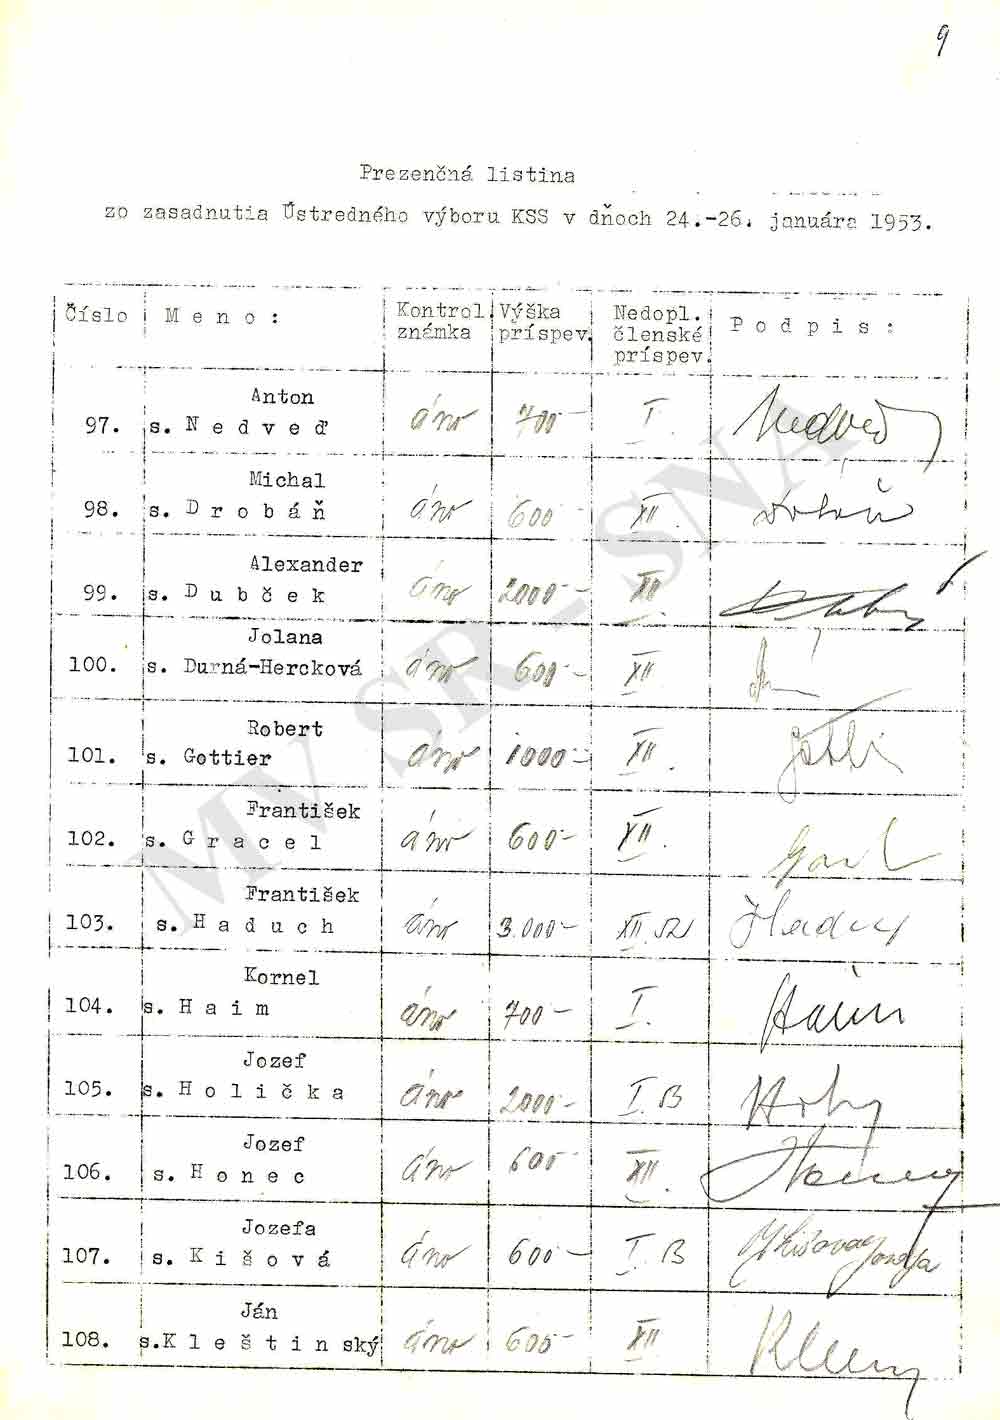 9
Prezenčná listina
zo zasadnutia Ústredného výboru KSS v dňoch 24.-26. januára 1953.
Číslo M e n o : Kontrol. známka Výška príspev. Nedopl. členské príspev. P o d p i s :
Anton
97. s. N e d v e ď áno 700- I. Nedveď
Michal
98. s. D r o b á ň áno 600 XII.
Alexander
99. s. D u b č e k áno 2000- XII.
Jolana
100. s. Durná-Hercková áno 600- XII
Robert
101. s. Gottier áno 1000- XII.
František
102. s. G r a c e l áno 600- XII.
František
103. s. H a d u c h áno 3.000- XII.
Kornel
104. s. H a i m áno 700- I. Haim
Jozef
105. s. H o l i č k a áno 2000- I. B
Jozef
106. s. H o n e c áno 600- XII.
Jozefa
107. s. K i š o v á áno 600- I. B Kišová Jozefa
Ján
108. s.K l e š t i n ský áno 600- XII
MV SR - SNA